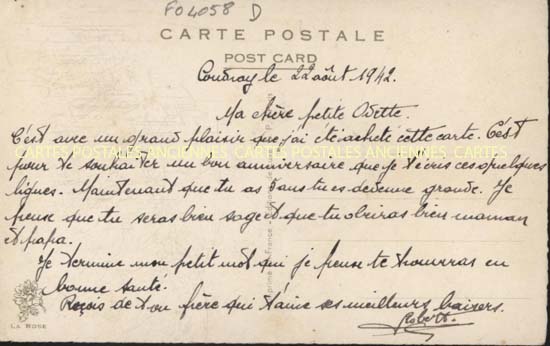 FO4058 D
CARTE POSTALE
POST CARD
Coudray le 22 août 1942.
Ma chère petite Odette.
C'est avec un grand plaisir que j'ai été acheté cette carte. C'est
CARTES POSTALES ANCIENNES CARTES
pour te souhaiter un bon anniversaire que je t'écris ces quelques
lignes. Maintenant que tu as 3 ans tu es devenue grande. Je
pense que tu seras bien sage et que tu obeiras bien maman
et papa.
Je termine mon petit mot qui je pense te trouveras en
bonne santé.
Reçois de ton frère qui t'aime ses meilleurs baisers.
Robert.
LA ROSE